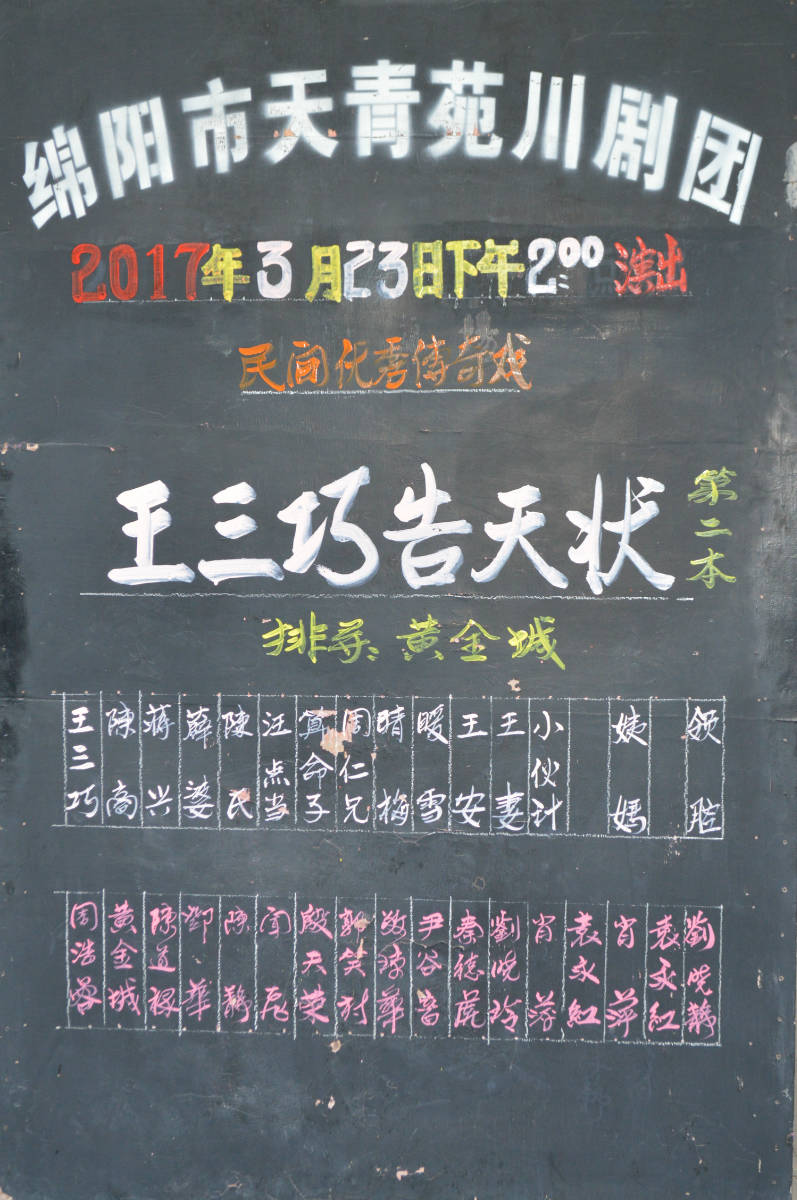 绵阳市天青苑川剧团
2017年3月23日下午2:00演出
民间优秀传奇戏
王三巧告天状
第二本
排导 黄金城
王三巧
陳商
蒋兴
薛婆
陳氏
汪点当
算命子
周仁兄
晴梅
暖雪
王安
王妻
小伙计
姨媽
领腔
周浩蓉
黄金城
陳道禄
鄧華
陳静
闻尼
殷天荣
郭笑村
尹谷音
秦德虎
劉晓玲
肖萍
袁永紅
肖萍
袁永紅
劉晓静